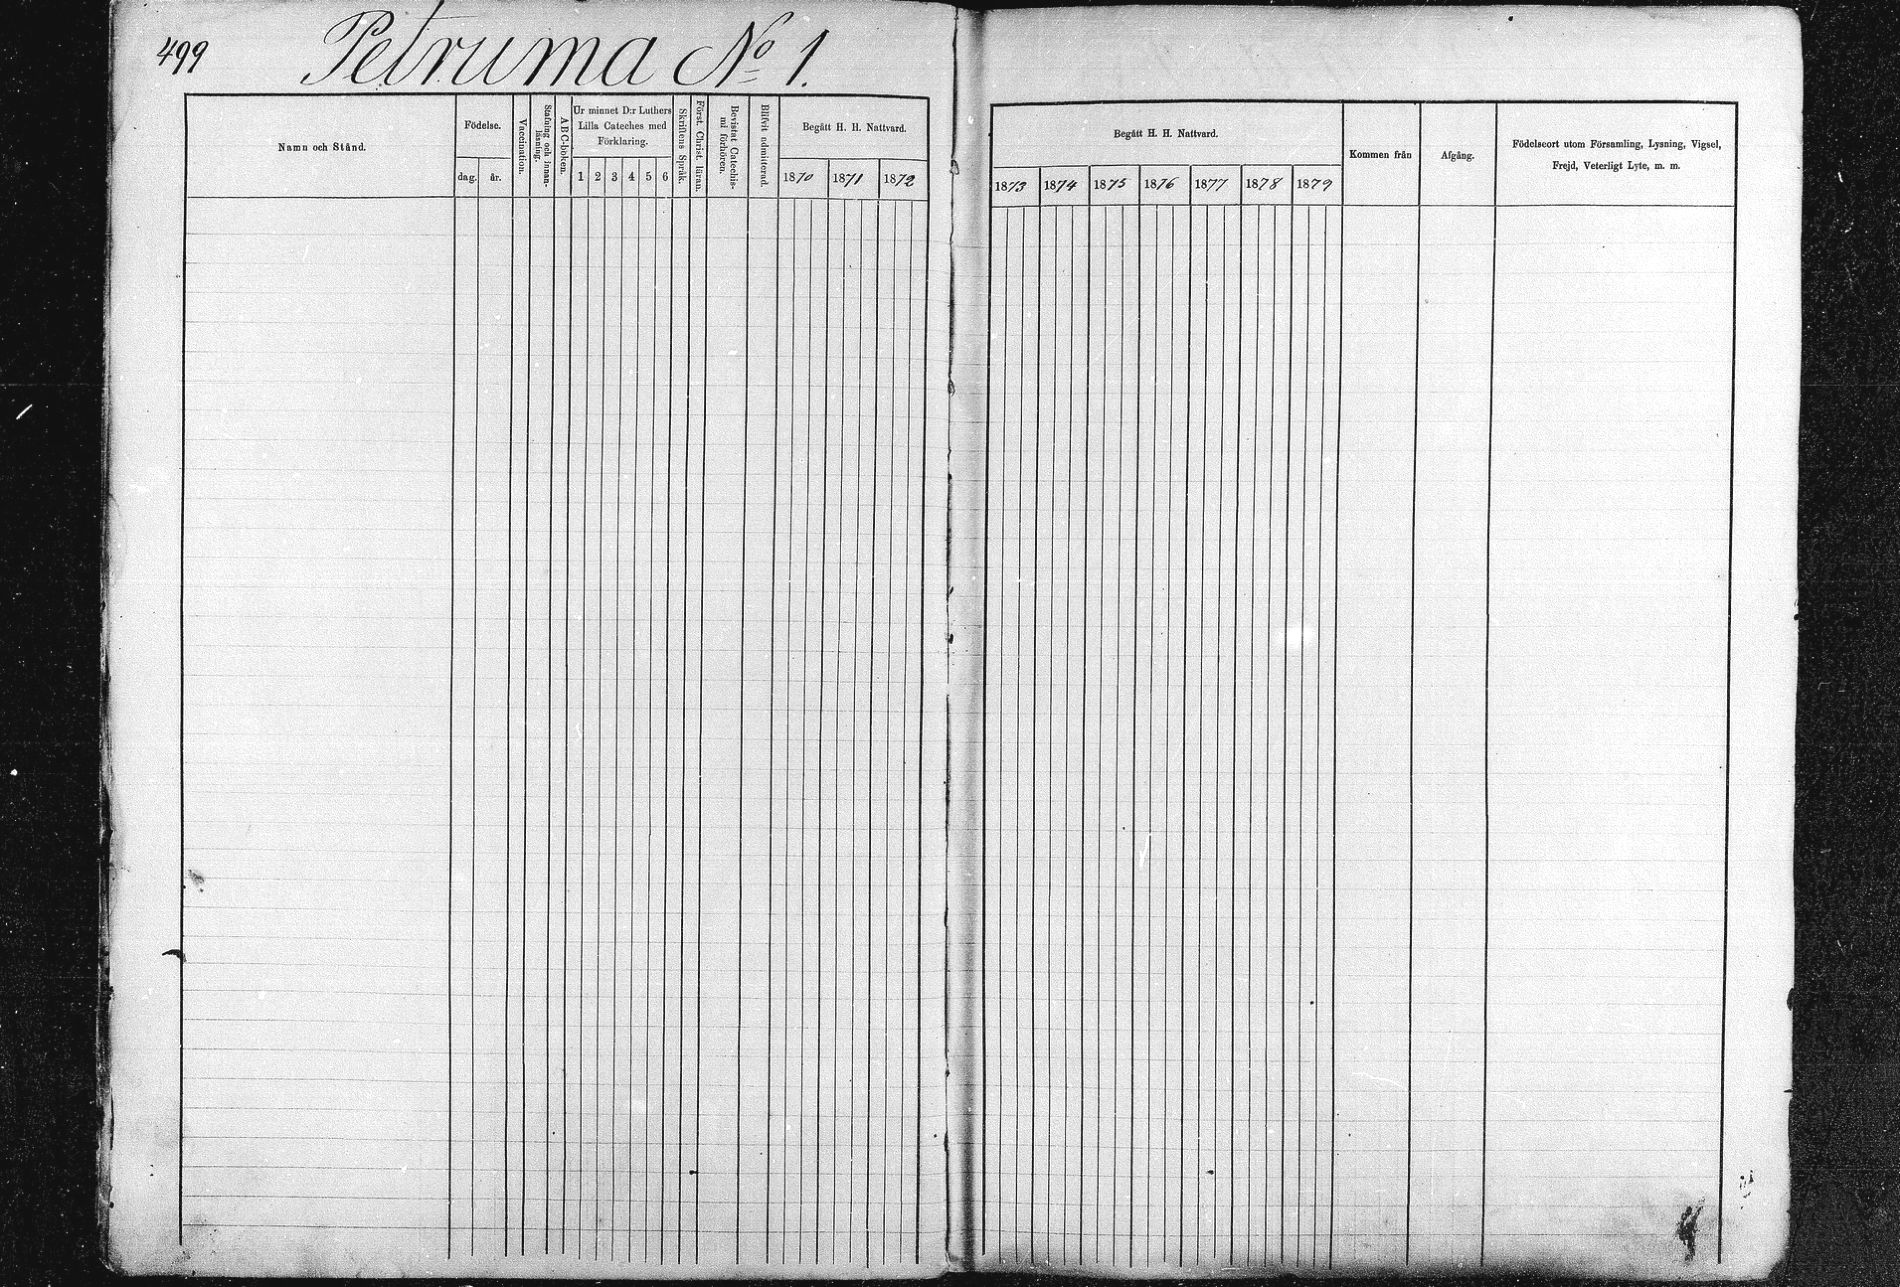 499 Petruma No 1.
Namn och Stånd.
Födelse.
dag. år.
Vaccination.
Stafning och innan-
läsning.
ABC-boken.
Ur minnet D:r Luthers
Lilla Cateches med
Förklaring.
1 2 3 4 5 6
Skriftens Språk.
Först. Christ. läran.
Bevistat Catechis-
mi förhören.
Blifvit admitterad.
Begått H. H. Nattvard.
1870 1871 1872
Begått H. H. Nattvard.
1873 1874 1875 1876 1877 1878 1879
Kommen från
Afgång.
Födelseort utom Församling, Lysning, Vigsel,
Frejd, Veterligt Lyte, m. m.